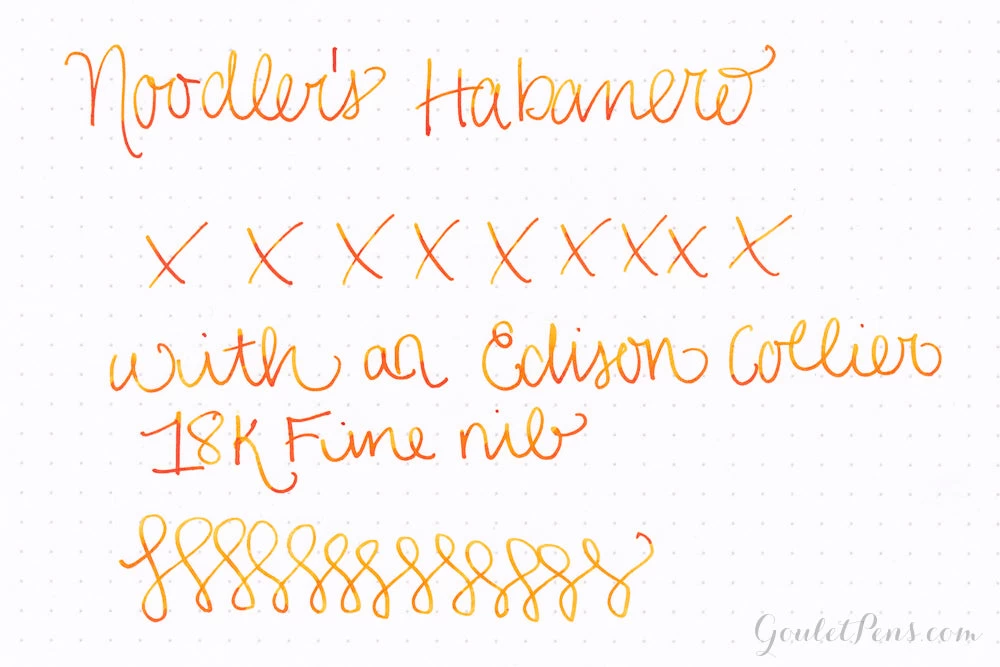 Noodler's Habanero
x x x x x x x x x
with an Edison Collier
18K Fine nib
GouletPens.com